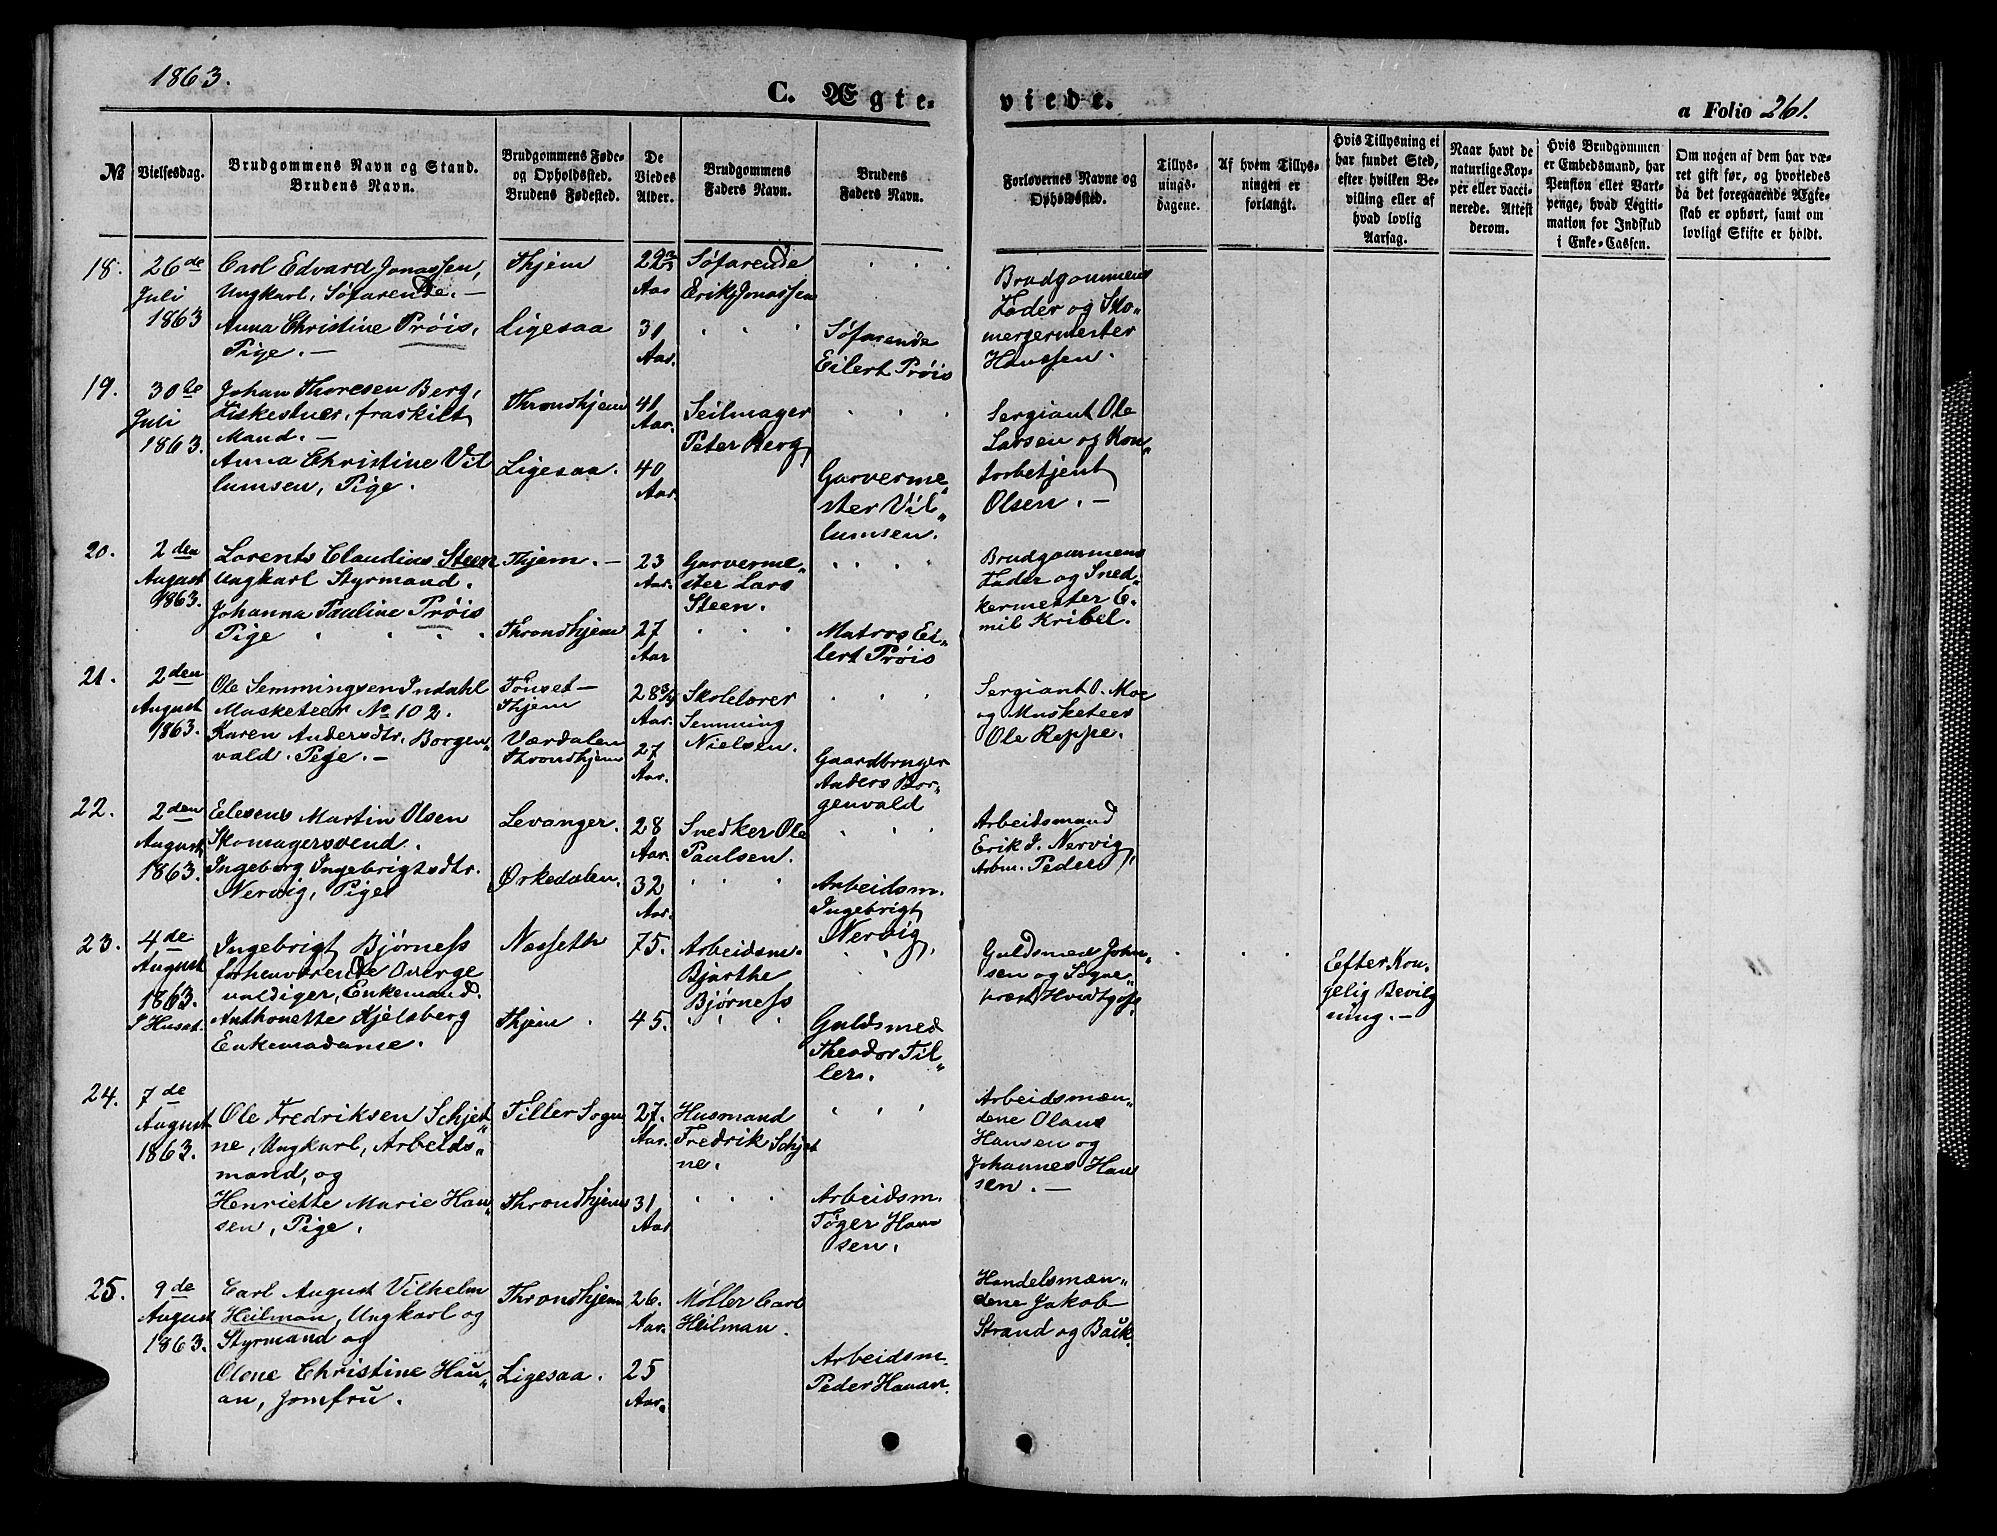 1863.
C. Ægte-
viede.
a Folio 261.
№
Vielsesdag.
Brudgommens Navn og Stand.
Brudens Navn.
Brudgommens Føde-
og Opholdsted.
Brudens Fødested.
De
Viedes
Alder.
Brudgommens
Faders Navn.
Brudens
Faders Navn.
Forlovernes Navne og
Opholdsted.
Tillys-
nings-
dagene.
Af hvem Tillys-
ningen er
forlangt.
Hvis Tillysning ei
har fundet Sted,
efter hvilken Be-
villing eller af
hvad lovlig
Aarsag.
Naar havt de
naturlige Kop-
per eller vacci-
nerede. Attest
derom.
Hvis Brudgommen
er Embedsmand, har
Pension eller Vart-
penge, hvad Legiti-
mation for Indskud
i Enke-Cassen.
Om nogen af dem har væ-
ret gift før, og hvorledes
da det foregaaende Ægte-
skab er ophørt, samt om
lovligt Skifte er holdt.
18.
26de
Juli
1863
Carl Edvard Jonassen,
Ungkarl, Søfarende. —
Anna Christine Prøis,
Pige. —
Thjem
Ligesaa
Aar
31
Aar.
Søfarende
Erik Jonassen
Søfarende
Eilert Prøis
Brudgommens
Fader og Sko„
magermester
Hanssen.
19.
30te
Juli
1863.
Johan Thoresen Berg,
fraskilt
Mand. —
Anna Christine Vil
lumsen, Pige.
Throndhjem
Ligesaa.
41
Aar.
40
Aar.
Seilmager
Peter Berg
Garverme„
ster Vil„
lumsen.
Sergiant Ole
Larsen og Kon„
torbetjent
Olsen. —
20.
2den
August
1863.
Lorents Claudius Steen
Ungkarl Styrmand.
Johanna Pauline Prøis
Pige
Thjem. —
Throndhjem
23
Aar.
27
Aar
Garverme„
ster Lars
Steen.
Matros Ei„
lert Prøis
Brudgommens
Fader og Sned„
kermester E„
mil Kribel.
21.
2den
August
1863.
Ole Semmingsen Indahl
Musketeer No 102.
Karen Andersdtr. Borgen„
vald. Pige. —
Tønset —
Thjem
Værdalen
Throndhjem
28 3/4
Aar.
27
Aar.
Skolelærer
Semming
Nielsen.
Gaardbruger
Anders Bor„
genvald
Sergiant O. Moe
og Musketeer
Ole Reppe.
22.
2den
August
1863.
Elesens Martin Olsen
Skomagersvend.
Ingeborg Ingebrigtsdtr.
Nervig, Pige
Levanger.
Ørkedalen.
28
Aar.
32
Aar.
Snedker Ole
Paulsen.
Arbeidsm.
Ingebrigt
Nervig,
Arbeidsmand
Erik I. Nervig,
Arbm. Peder
23.
4de
August
1863.
I Huset
Ingebrigt Bjørness
forhenværende Overge
valdiger, Enkemand.
Anthonette Kjelsberg
Enkemadame.
Nesseth
Thjem.
75.
45.
Arbeidsm.
Bjarthe
Bjørness
Guldsmed
Theodor Til„
ler.
Guldsmed John„
sen og Sogne„
Efter Kon„
gelig Bevilg
ning. —
24.
7de
August
1863.
Ole Fredriksen Schjet„
ne, Ungkarl, Arbeids„
mand, og
Henriette Marie Han„
sen, Pige.
Tiller Sogn
Throndhjem
27.
Aar.
31
Aar
Husmand
Fredrik Schjet
ne.
Arbeidsm.
Tøger Han
sen.
Arbeidsmæn„
dene Olaus
Hansen og
Johannes Han
sen. —
25.
9de
August
1863.
Carl August Vilhelm
Heilman, Ungkarl og
Styrmand og
Olene Christine Hau„
an, Jomfru.
Throndhjem
Ligesaa.
26.
Aar.
25
Aar.
Møller Carl
Heilman.
Arbeidsm.
Peder Hauan.
Handelsmæn„
dene Jakob
Strand og Bach